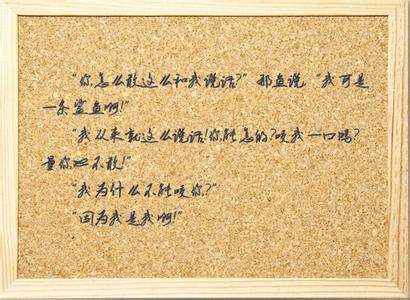 “你怎么敢这么和我说话?”那鱼说“我可是
一条鲨鱼啊!”
“我从来就这么说话!你能怎的?咬我一口吗?
量你不敢!”
“我为什么不能咬你?”
“因为我是我啊!”